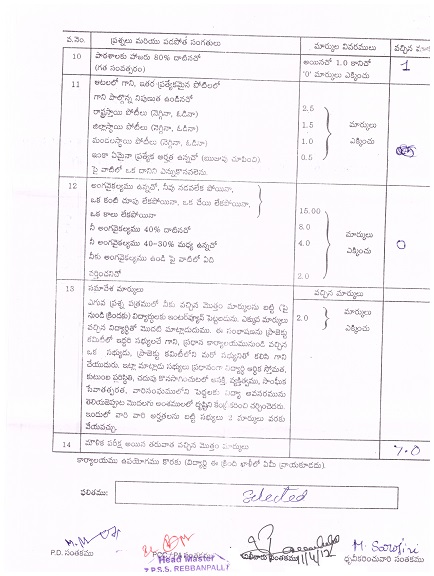 వ.నెం. ప్రశ్నలు మరియు పడపోతే సంగతులు మార్కుల వివరములు వచ్చిన
10 పాఠశాలకు హాజరు 80% దాటినచో అయినచో 1.0 కానిచో 1
(గత సంవత్సరం) '0' మార్కులు ఎక్కించు
11 ఆటలలో గాని, ఇతర ప్రత్యేకమైన పోటీలలో
గాని పాల్గొన్న నిపుణుత ఉండినచో
రాష్ట్రస్థాయి పోటీలు (నెగ్గినా, ఓడినా) 2.5
జిల్లాస్థాయి పోటీలు (నెగ్గినా, ఓడినా) 1.5 మార్కులు
మండలస్థాయి పోటీలు (నెగ్గినా, ఓడినా) 1.0 ఎక్కించు
ఇంకా ఏమైనా ప్రత్యేక అర్హత ఉన్నచో (ఋజువు చూపించి) 0.5
పై వాటిలో ఒక దానిని ఎన్నుకొనవలెను
12 అంగవైకల్యము ఉన్నచో, నీవు నడవలేక పోయినా,
ఒక కంటి చూపు లేకపోయినా, ఒక చేయి లేకపోయినా,
ఒక కాలు లేకపోయినా 15.00
నీ అంగవైకల్యము 40% దాటినచో 8.0 మార్కులు
నీ అంగవైకల్యము 40-30% మధ్య ఉన్నచో 4.0 ఎక్కించు 0
నీకు అంగవైకల్యము ఉండి పై వాటిలో ఏది
వర్తించనిచో 2.0
13 సమావేశ మార్కులు వచ్చిన మార్కులు
ఎగువ ప్రశ్న పత్రములో నీకు వచ్చిన మొత్తం మార్కులను బట్టి (పై
నుండి క్రిందకు) విద్యార్థులకు ఇంటర్వ్యూన్ పెట్టబడును. ఎక్కువ మార్కులు 2.0 మార్కులు
వచ్చిన విద్యార్థితో మొదట మాట్లాడుదుము. ఈ సంభాషణను ప్రాజెక్టు ఎక్కించు
కమిటీలో ఇద్దరి సభ్యులచే గాని, ప్రధాన కార్యాలయమునుండి వచ్చిన
ఒక సభ్యుడు, ప్రాజెక్టు కమిటీలోని మరో సభ్యునితో కలిసి గాని
చేయుదురు. ఇట్లా మాట్లాడు సభ్యులు ప్రధానంగా విద్యార్థి ఆర్థిక స్తోమత,
కుటుంబ పరిస్థితి, చదువు కొనసాగించుటలో ఆసక్తి వ్యక్తిత్వము, సాంఘిక
సేవాతత్పరత, వారిసంఘములోని పెద్దలకు విద్యా అవసరమును
తెలియజెప్పుట మొదలగు అంశములలో దృష్టిని కేంద్రీకరించి చర్చించెదరు.
ఇందులో వారి వారి అర్హతలను బట్టి సభ్యులు 2 మార్కులు వరకు
వేయవచ్చు.
14 మౌళిక పరీక్ష అయిన తరువాత వచ్చిన మొత్తం మార్కులు 7.0
కార్యాలయము ఉపయోగము కొరకు (విద్యార్థి ఈ క్రింది ఖాళీలో ఏమీ వ్రాయకూడదు).
ఫలితము: Selected
11/4/12 M. Sarojini
P.D. సంతకము సంతకము ధృవీకరించువారి సంతకము
Head Master
Z.P.S.S. REBBANPALLI